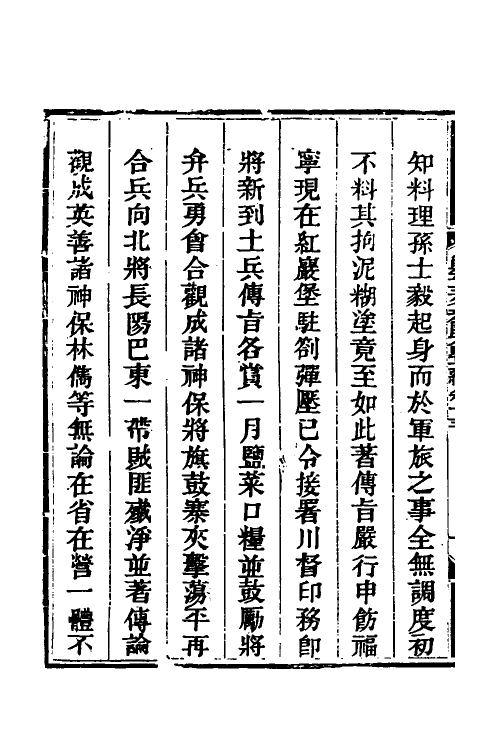 知料理孫士毅起身而於軍旅之事全無調度初
不料其拘泥糊塗竟至如此著傳旨嚴行申飭福
寧現在紅巖堡駐劄彈壓已令接署川督印務即
將新到土兵傳旨各賞一月鹽菜口糧並鼓勵將
弁兵勇會合觀成諸神保將旗鼓寨夾擊蕩平再
合兵向北將長陽巴東一帶賊匪殲淨並著傳諭
觀成英善諸神保林儁等無論在省在營一體不